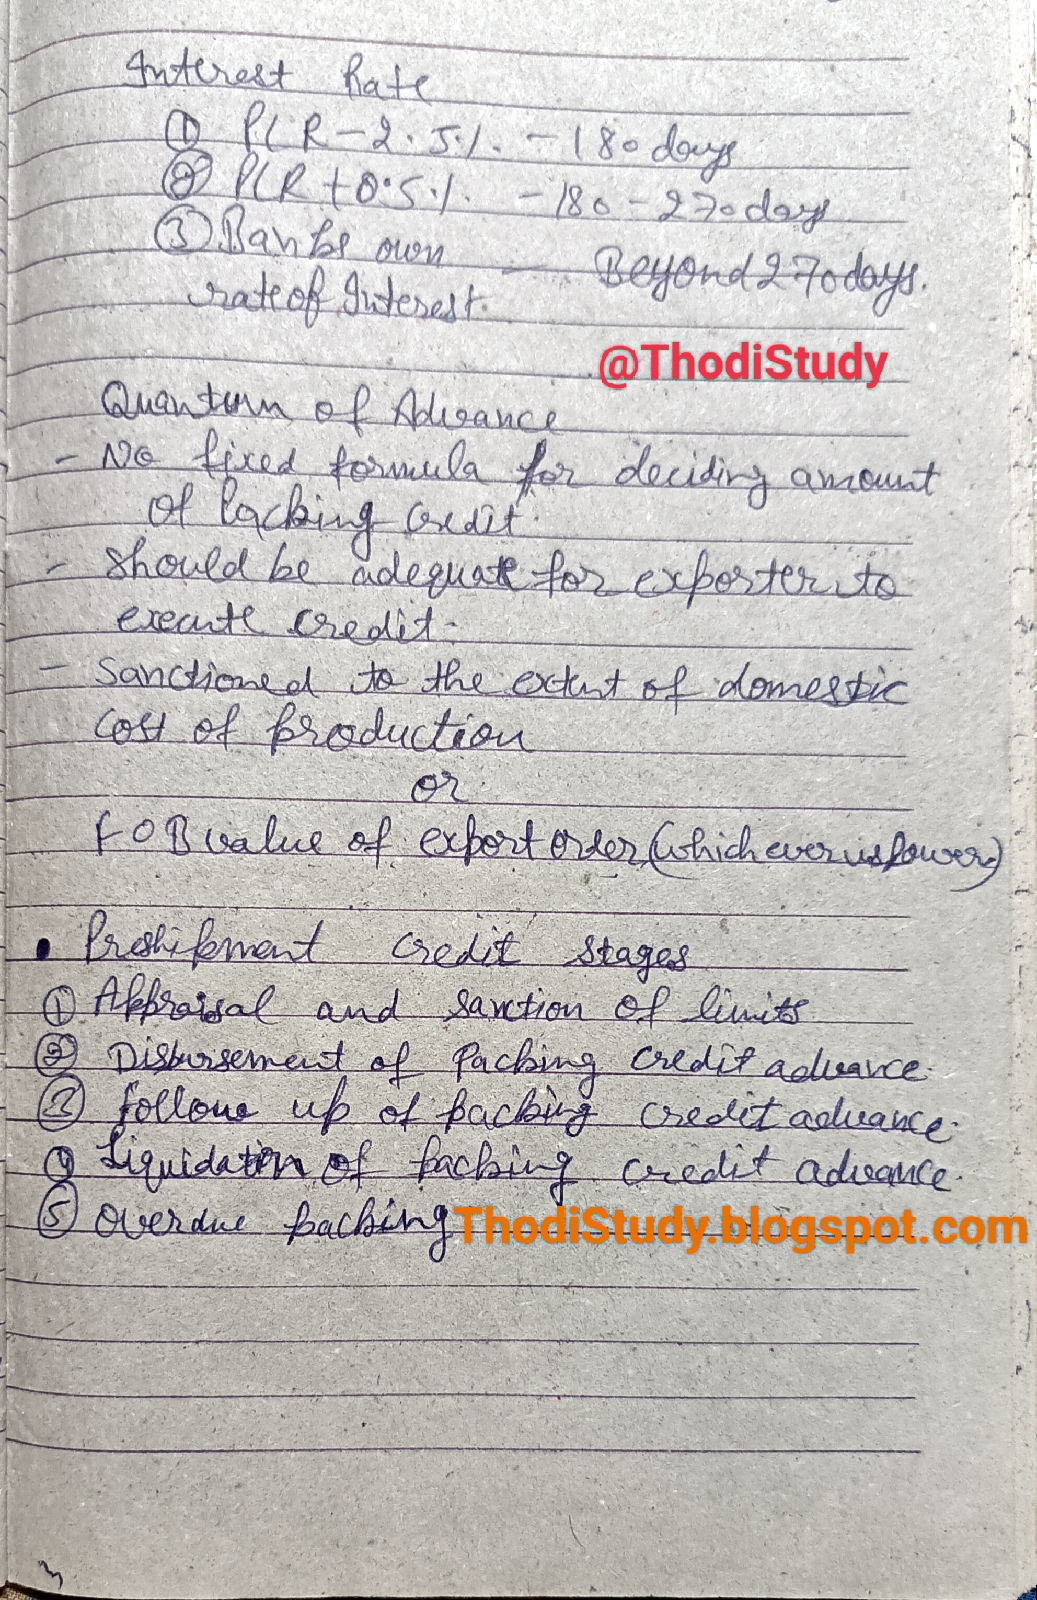 Interest Rate
① PLR - 2.5% - 180 days
② PLR + 0.5% - 180 - 270 days
③ Banks own — Beyond 270 days.
rate of Interest.
@ThodiStudy
Quantum of Advance
- No fixed formula for deciding amount
of Packing Credit.
- Should be adequate for exporter to
execute credit.
- Sanctioned to the extent of domestic
cost of production
or
FOB value of export order (which ever is lower)
• Preshipment credit stages
① Appraisal and sanction of limits
② Disbursement of Packing credit advance.
③ follow up of packing credit advance.
④ Liquidation of packing credit advance.
⑤ Overdue packing
ThodiStudy.blogspot.com